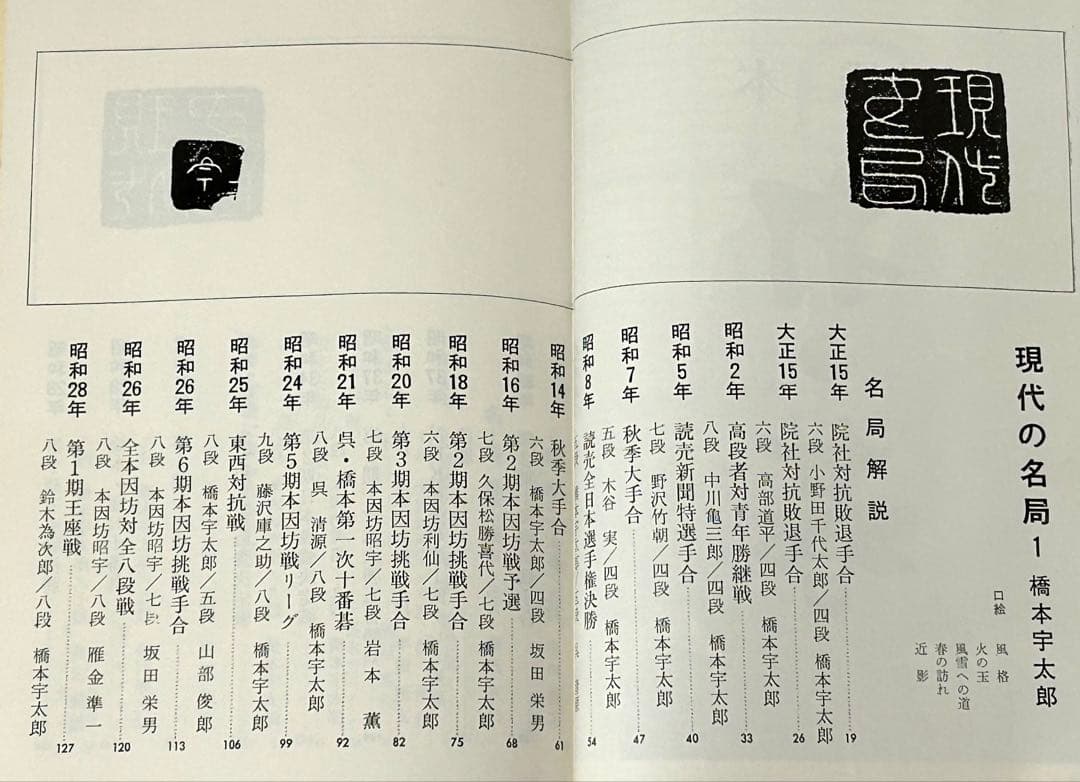 現代
名局
現代の名局1 橋本宇太郎
口絵 風格
火の玉
風雪への道
春の訪れ
近影
名局解説
大正15年 院社対抗敗退手合 19
六段 小野田千代太郎／四段 橋本宇太郎
大正15年 院社対抗敗退手合 26
六段 高部道平／四段 橋本宇太郎
昭和2年 高段者対青年勝継戦 33
八段 中川亀三郎／四段 橋本宇太郎
昭和5年 読売新聞特選手合 40
七段 野沢竹朝／四段 橋本宇太郎
昭和7年 秋季大手合 47
五段 木谷 実／四段 橋本宇太郎
昭和8年 読売全日本選手権決勝 54
今
昭和14年 秋季大手合 61
六段 橋本宇太郎／四段 坂田栄男
昭和16年 第2期本因坊戦予選 68
七段 久保松勝喜代／七段 橋本宇太郎
昭和18年 第2期本因坊挑戦手合 75
六段 本因坊利仙／七段 橋本宇太郎
昭和20年 第3期本因坊挑戦手合 82
七段 本因坊昭宇／七段 岩本 薫
昭和21年 呉・橋本第一次十番碁 92
八段 呉 清源／八段 橋本宇太郎
昭和24年 第5期本因坊戦リーグ 99
九段 藤沢庫之助／八段 橋本宇太郎
昭和25年 東西対抗戦 106
八段 橋本宇太郎／五段 山部俊郎
昭和26年 第6期本因坊挑戦手合 113
八段 本因坊昭宇／七段 坂田栄男
昭和26年 全本因坊対全八段戦 120
八段 本因坊昭宇／八段 雁金準一
昭和28年 第1期王座戦 127
八段 鈴木為次郎／八段 橋本宇太郎